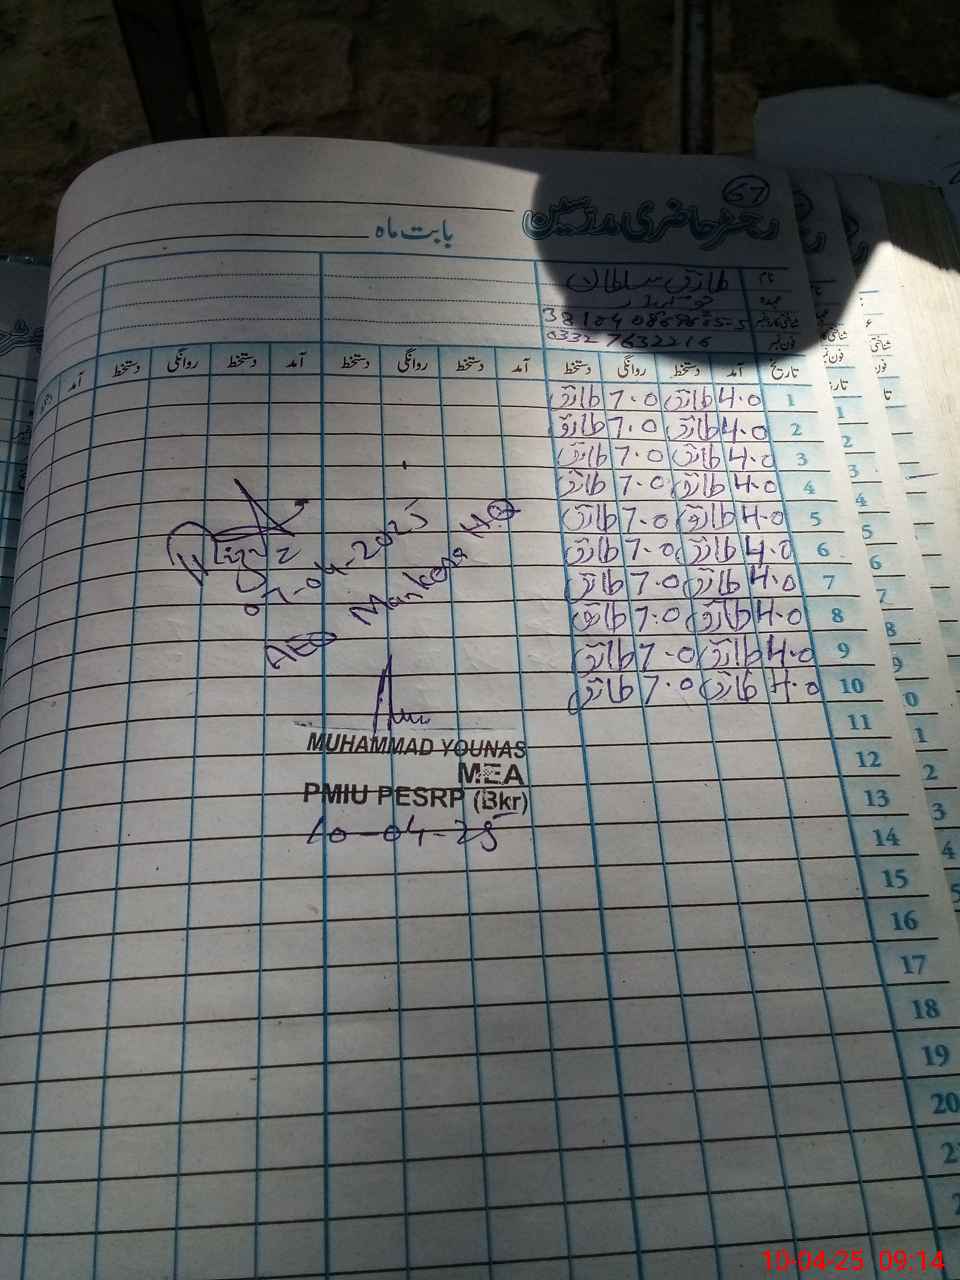 67
رجسٹر حاضری مدرسین
بابت ماہ
نام طارق سلطان
عہدہ
شناختی کارڈ نمبر
فون نمبر 0332 7632216
تاریخ آمد دستخط روانگی دستخط آمد دستخط روانگی دستخط آمد دستخط روانگی دستخط آمد
1 4.0 طارق 7.0 طارق
2 4.0 طارق 7.0 طارق
3 4.0 طارق 7.0 طارق
4 4.0 طارق 7.0 طارق
5 4.0 طارق 7.0 طارق
6 4.0 طارق 7.0 طارق
7 4.0 طارق 7.0 طارق
8 4.0 طارق 7.0 طارق
9 4.0 طارق 7.0 طارق
10 4.0 طارق 7.0 طارق
11
12
13
14
15
16
17
18
19
20
07-04-2025
AEO Mankera H.Q
MUHAMMAD YOUNAS
MEA
PMIU PESRP (Bkr)
10-04-25
10-04-25 09:14